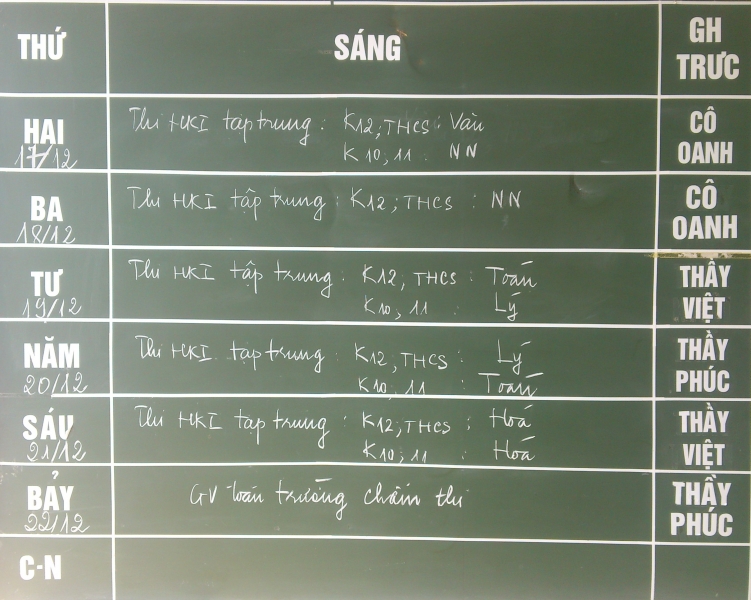 THỨ SÁNG GH TRỰC
HAI 17/12 Thi HKI tập trung : K12, THCS : Văn CÔ OANH
K10, 11 : NN
BA 18/12 Thi HKI tập trung : K12; THCS : NN CÔ OANH
TƯ 19/12 Thi HKI tập trung : K12, THCS : Toán THẦY VIỆT
K10, 11 : Lý
NĂM 20/12 Thi HKI tập trung : K12, THCS : Lý THẦY PHÚC
K10, 11 : Toán
SÁU 21/12 Thi HKI tập trung : K12, THCS : Hoá THẦY VIỆT
K10, 11 : Hoá
BẢY 22/12 GV toàn trường chấm thi THẦY PHÚC
C-N